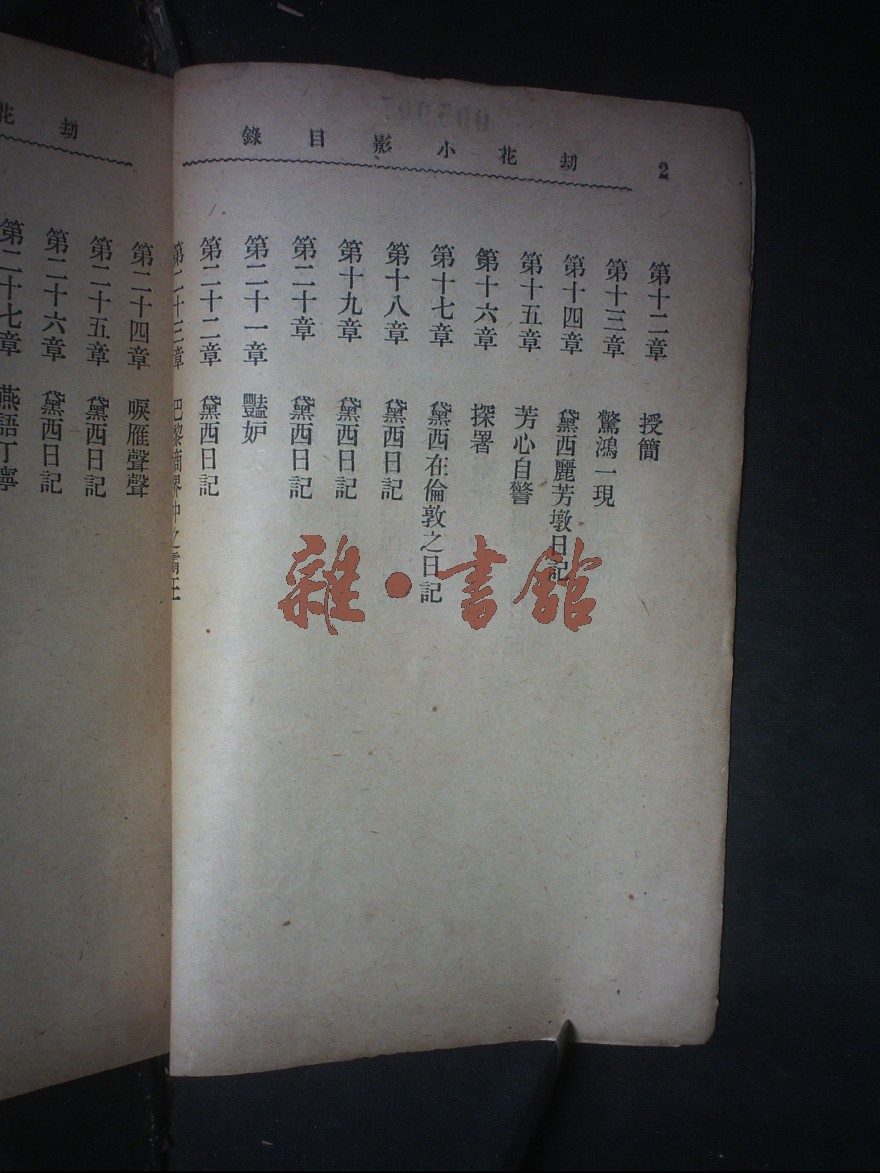 劫花小影目錄
2
第十二章 授簡
第十三章 驚鴻一現
第十四章 黛西麗芳墩日記
第十五章 芳心自警
第十六章 探署
第十七章 黛西在倫敦之日記
第十八章 黛西日記
第十九章 黛西日記
第二十章 黛西日記
第二十一章 豔妒
第二十二章 黛西日記
第二十三章 巴黎商界中之霸王
劫花
第二十四章 唳雁聲聲
第二十五章 黛西日記
第二十六章 黛西日記
第二十七章 燕語丁寧
雜·書館